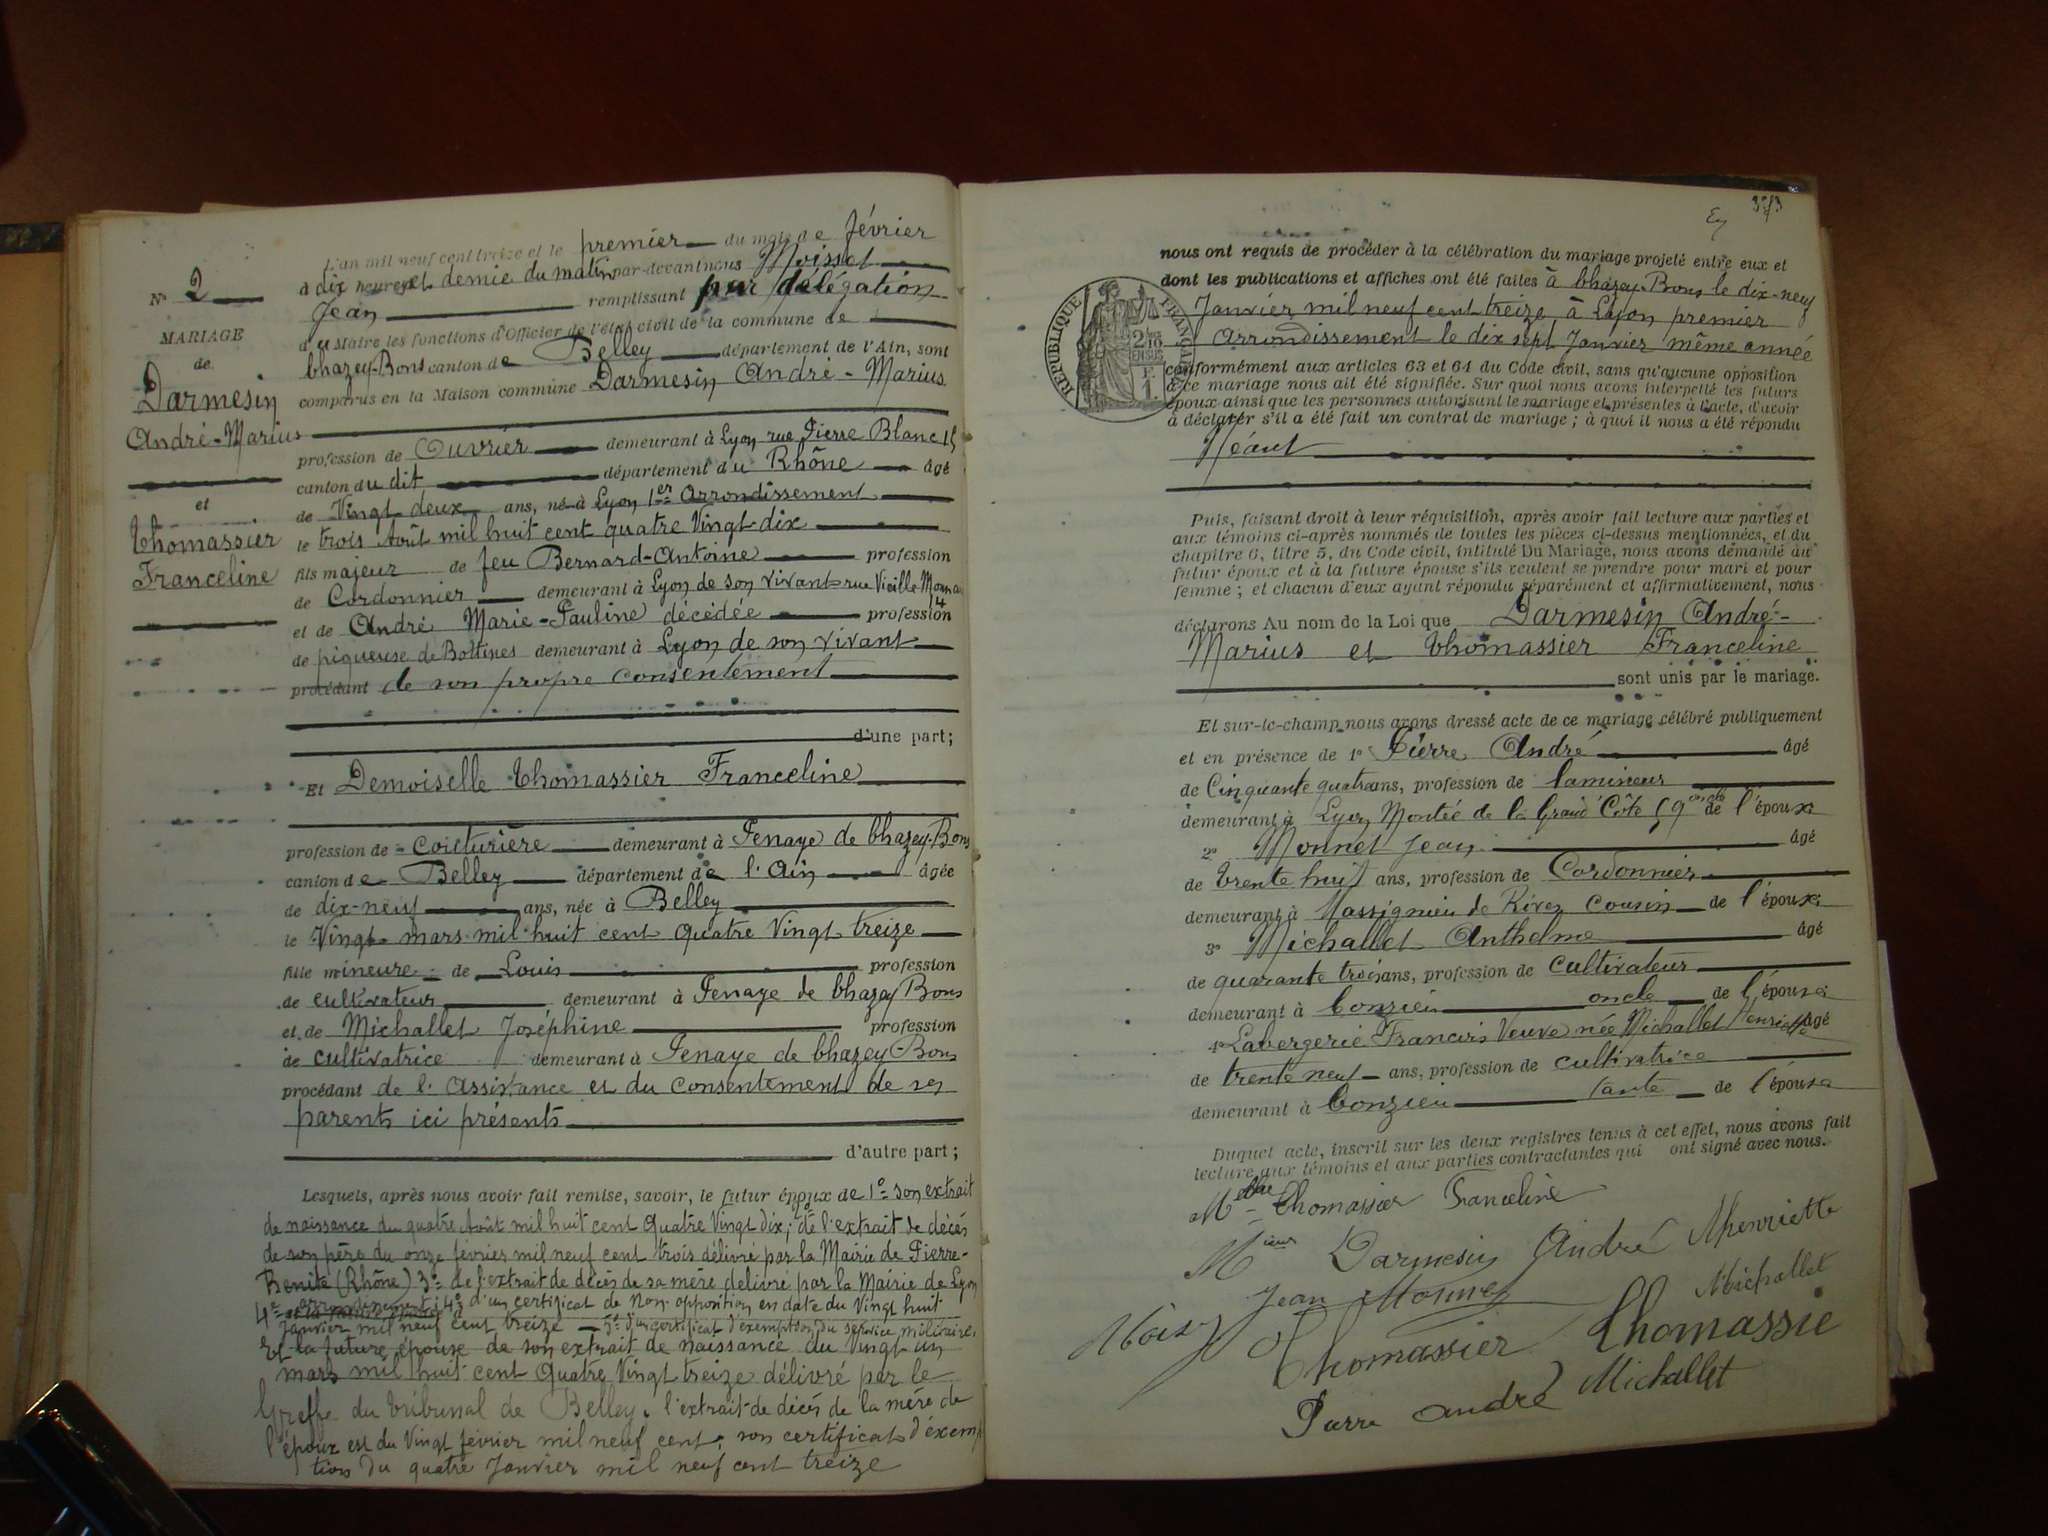 N° 2
MARIAGE
de
Darmesin
André-Marius
et
Thomassier
Franceline
L'an mil neuf cent treize et le premier du mois de février
à dix heures et demie du matin par-devant nous Moissel
Jean remplissant par délégation
du Maire les fonctions d'Officier de l'état civil de la commune de
Chazey-Bons canton de Belley département de l'Ain, sont
comparus en la Maison commune Darmesin André-Marius
profession de Ouvrier demeurant à Lyon rue Pierre Blanc 15
canton du dit département du Rhône âgé
de Vingt deux ans, né à Lyon 1er Arrondissement
le trois Août mil huit cent quatre Vingt-dix
fils majeur de feu Bernard-Antoine profession
de Cordonnier demeurant à Lyon de son vivant rue Vieille Monnaie
4
et de André Marie-Pauline décédée profession
de piqueuse de Bottines demeurant à Lyon de son vivant
procédant de son propre consentement
d'une part;
Et Demoiselle Thomassier Franceline
profession de couturière demeurant à Penaye de Chazey-Bons
canton de Belley département de l'Ain âgée
de dix-neuf ans, née à Belley
le Vingt mars mil huit cent quatre Vingt treize
fille mineure de Louis profession
de cultivateur demeurant à Penaye de Chazey Bons
et de Michallet Joséphine profession
de cultivatrice demeurant à Penaye de Chazey-Bons
procédant de l'Assistance et du consentement de ses
parents ici présents
d'autre part;
Lesquels, après nous avoir fait remise, savoir, le futur époux de 1° son extrait
de naissance du quatre Août mil huit cent Quatre Vingt dix; 2° de l'extrait de décès
de son père du onze février mil neuf cent trois délivré par la Mairie de Pierre-
Bénite (Rhône) 3° de l'extrait de décès de sa mère délivré par la Mairie de Lyon
4e arrondissement; 4° d'un certificat de Non-opposition en date du Vingt huit
Janvier mil neuf cent treize 5° d'un certificat d'exemption du service militaire.
Et la future épouse de son extrait de naissance du Vingt un
mars mil huit cent Quatre Vingt treize délivré par le
Greffe du tribunal de Belley. l'extrait de décès de la mère de
l'époux est du Vingt février mil neuf cent; son certificat d'exemp
tion du quatre Janvier mil neuf cent treize
373
nous ont requis de procéder à la célébration du mariage projeté entre eux et
dont les publications et affiches ont été faites à Chazey-Bons le dix-neuf
Janvier mil neuf cent treize à Lyon premier
Arrondissement le dix sept Janvier même année
RÉPUBLIQUE FRANÇAISE
conformément aux articles 63 et 64 du Code civil, sans qu'aucune opposition
à ce mariage nous ait été signifiée. Sur quoi nous avons interpellé les futurs
époux ainsi que les personnes autorisant le mariage et présentes à l'acte, d'avoir
à déclarer s'il a été fait un contrat de mariage; à quoi il nous a été répondu
Néant
Puis, faisant droit à leur réquisition, après avoir fait lecture aux parties et
aux témoins ci-après nommés de toutes les pièces ci-dessus mentionnées, et du
chapitre 6, titre 5, du Code civil, intitulé Du Mariage, nous avons demandé au
futur époux et à la future épouse s'ils veulent se prendre pour mari et pour
femme; et chacun d'eux ayant répondu séparément et affirmativement, nous
déclarons Au nom de la Loi que Darmesin André-
Marius et Thomassier Franceline
sont unis par le mariage.
Et sur-le-champ nous avons dressé acte de ce mariage célébré publiquement
et en présence de 1° Pierre André âgé
de Cinquante quatre ans, profession de lamineur
demeurant à Lyon Montée de la Grand'Côte 59 oncle de l'époux
2° Monnet Jean âgé
de trente huit ans, profession de Cordonnier
demeurant à Massignieu de Rives cousin de l'épouse
3° Michallet Anthelme âgé
de quarante trois ans, profession de cultivateur
demeurant à Conzieu oncle de l'épouse
4° Lavergerie Francis Veuve née Michallet Henriette âgé
de trente neuf ans, profession de cultivatrice
demeurant à Conzieu tante de l'épouse
Duquel acte, inscrit sur les deux registres tenus à cet effet, nous avons fait
lecture aux témoins et aux parties contractantes qui ont signé avec nous.
Melle Thomassier Franceline
Darmesin André Mhenriette
Jean Monnet Michallet
Thomassier Thomassie
Pierre André Michallet